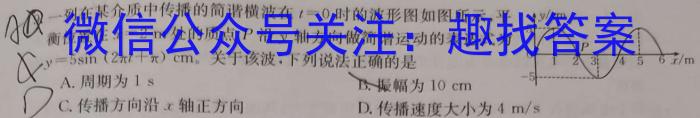 一列在某介质中传播的简谐横波在 t=0 时的波形图如图所示, 平
衡 处的质点 P y 轴方向做简 运动的表
微信公众号关注：趣找答案
y=5sin (2πt+π) cm。关于该波,下列说法正确的是
A. 周期为 1 s
B. 振幅为 10 cm
C. 传播方向沿 x 轴正方向
D. 传播速度大小为 4 m/s
y/cm
0 1 2 3 4 5 6 x/m
-5
P